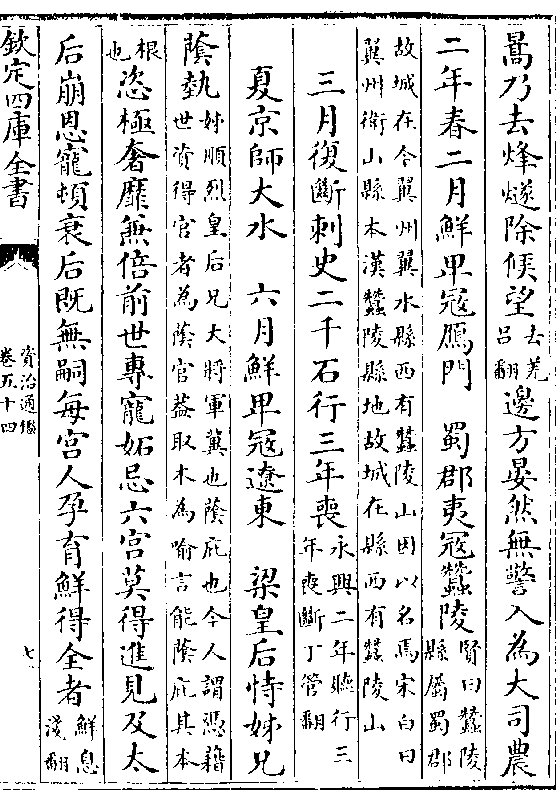 暠乃去烽燧除候望去羌呂翻邊方晏然無警入為大司農
二年春二月鮮卑寇鴈門　蜀郡夷寇蠶陵賢曰蠶陵縣屬蜀郡
故城在今翼州翼水縣西有蠶陵山因以名焉宋白曰翼州衛山縣本漢蠶陵縣地故城在縣西有蠶陵山
三月復斷刺史二千石行三年喪永興二年聽行三年喪斷丁管翻
夏京師大水　六月鮮卑寇遼東　梁皇后恃姊兄
蔭埶姊順烈皇后兄大將軍冀也蔭庇也今人謂憑藉世資得官者為蔭官葢取木為喻言能蔭庇其本
根也恣極奢靡無倍前世專寵妬忌六宮莫得進見及太
后崩恩寵頓衰后既無嗣每宮人孕育鮮得全者鮮息淺翻
欽定四庫全書
資治通鑑
卷五十四
七